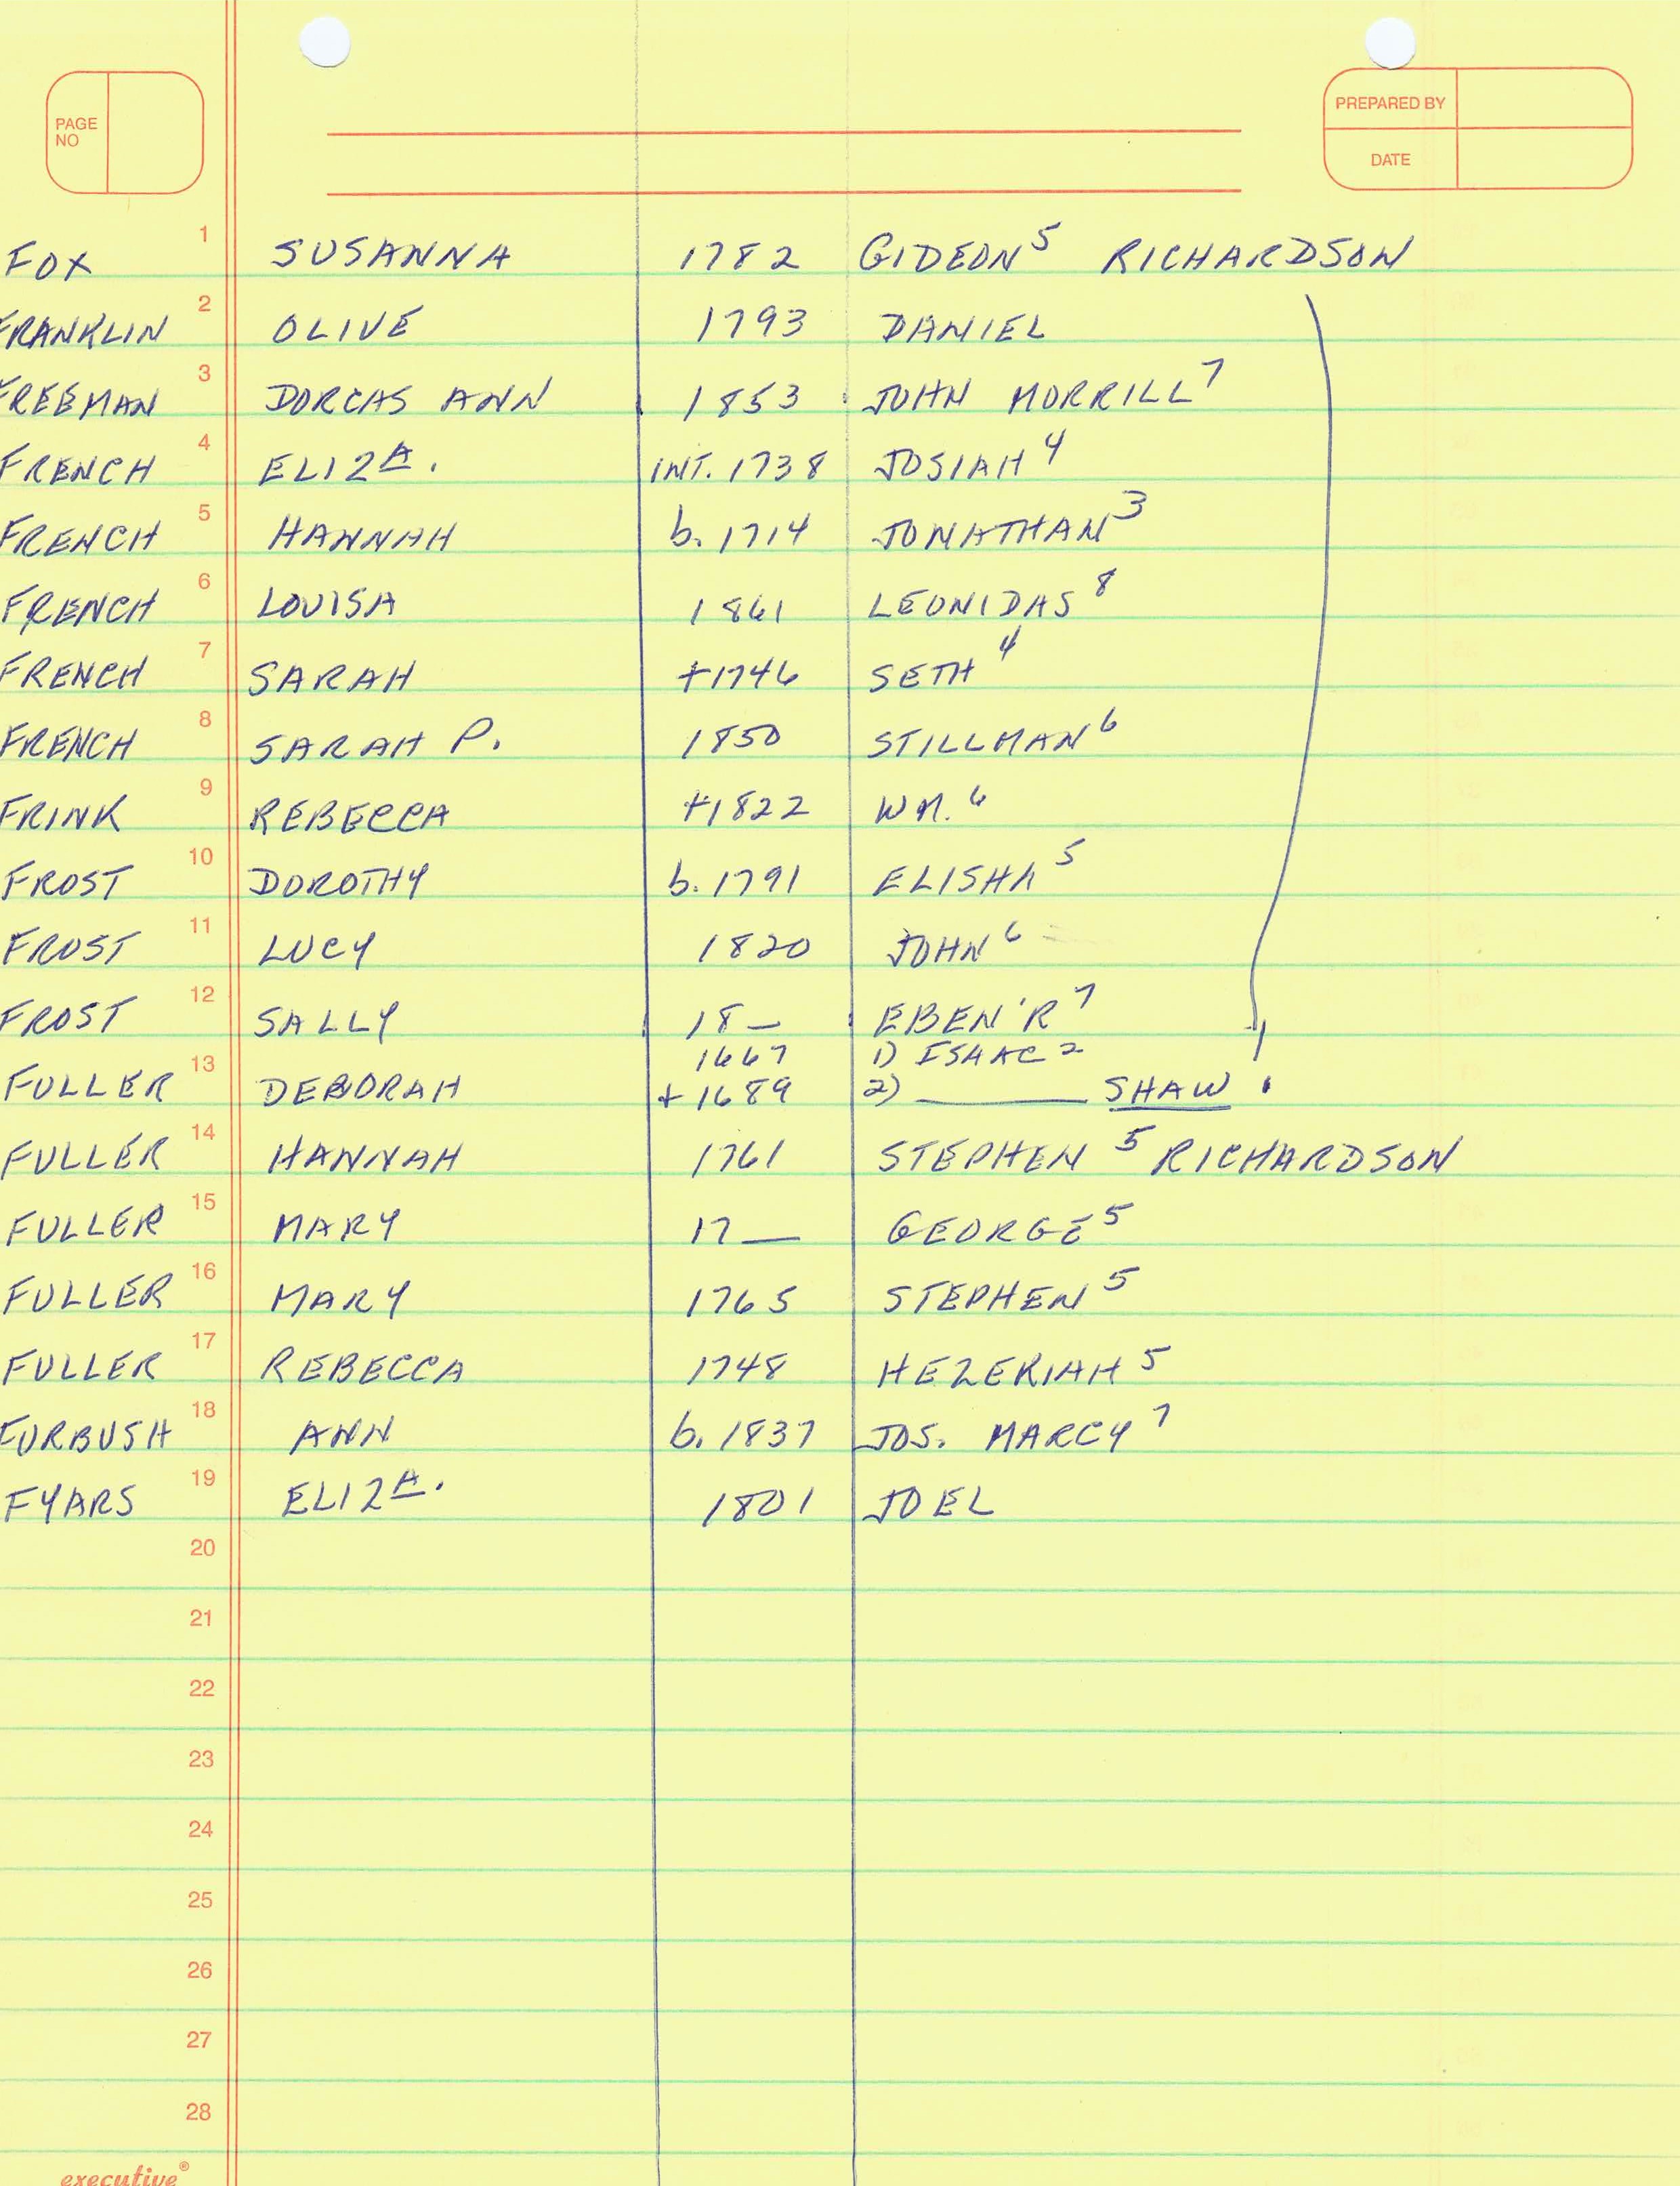 PAGE NO
PREPARED BY
DATE
1 FOX SUSANNA 1782 GIDEON⁵ RICHARDSON
2 FRANKLIN OLIVE 1793 DANIEL
3 FREEMAN DORCAS ANN 1853 JOHN MORRILL⁷
4 FRENCH ELIZᴬ. INT. 1738 JOSIAH⁴
5 FRENCH HANNAH b. 1714 JONATHAN³
6 FRENCH LOUISA 1861 LEONIDAS⁸
7 FRENCH SARAH +1746 SETH⁴
8 FRENCH SARAH P. 1850 STILLMAN⁶
9 FRINK REBECCA +1822 WM.⁶
10 FROST DOROTHY b. 1791 ELISHA⁵
11 FROST LUCY 1820 JOHN⁶
12 FROST SALLY 18— EBEN'R⁷
1667 1) ISAAC²
13 FULLER DEBORAH +1689 2) ______ SHAW
14 FULLER HANNAH 1761 STEPHEN⁵ RICHARDSON
15 FULLER MARY 17— GEORGE⁵
16 FULLER MARY 1765 STEPHEN⁵
17 FULLER REBECCA 1748 HEZEKIAH⁵
18 FURBUSH ANN b. 1837 JOS. MARCY⁷
19 FYARS ELIZᴬ. 1801 JOEL
20
21
22
23
24
25
26
27
28
executive®